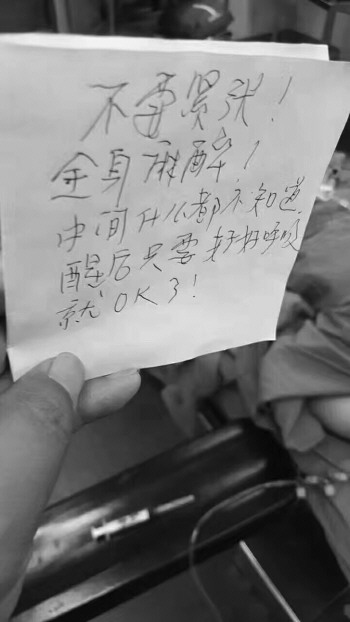 不要紧张！
全身麻醉！
中间什么都不知道
醒后只要好好呼吸
就OK了！